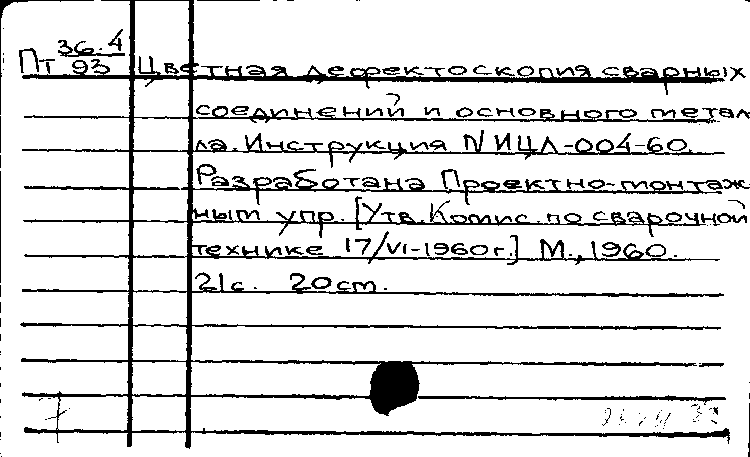 Пт 36.4/93 Цветная дефектоскопия сварных
соединений и основного метал-
ла. Инструкция N ИЦЛ-004-60.
Разработана Проектно-монтаж
ным упр. [Утв. Комис. по сварочной
технике 17/VI-1960г.] М., 1960.
21с. 20см.